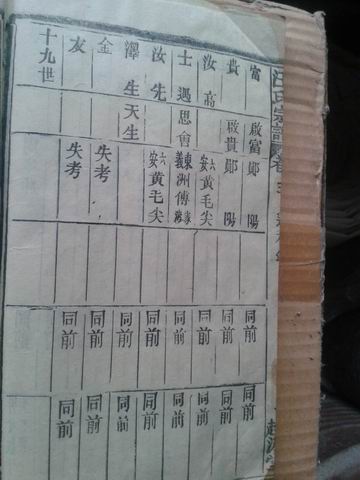 汪氏宗譜
富 啟富 鄖陽 同前 同前
貴 啟貴 鄖陽 同前 同前
汝高 六安黃毛尖 同前 同前
士遇 思會 東洲傳 同前 同前
汝先 六安黃毛尖 同前 同前
澤生 天生 同前 同前
金 失考 同前 同前
友 失考 同前 同前
十九世